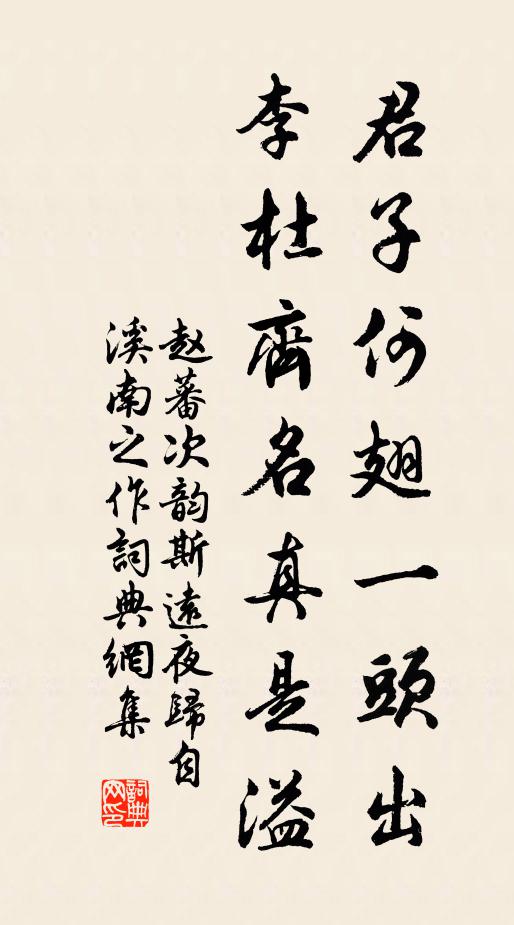 君子何翅一頭出
李杜齊名真是溢
赵蕃次韵斯遠夜歸自
溪南之作詞典網集
詞典网印